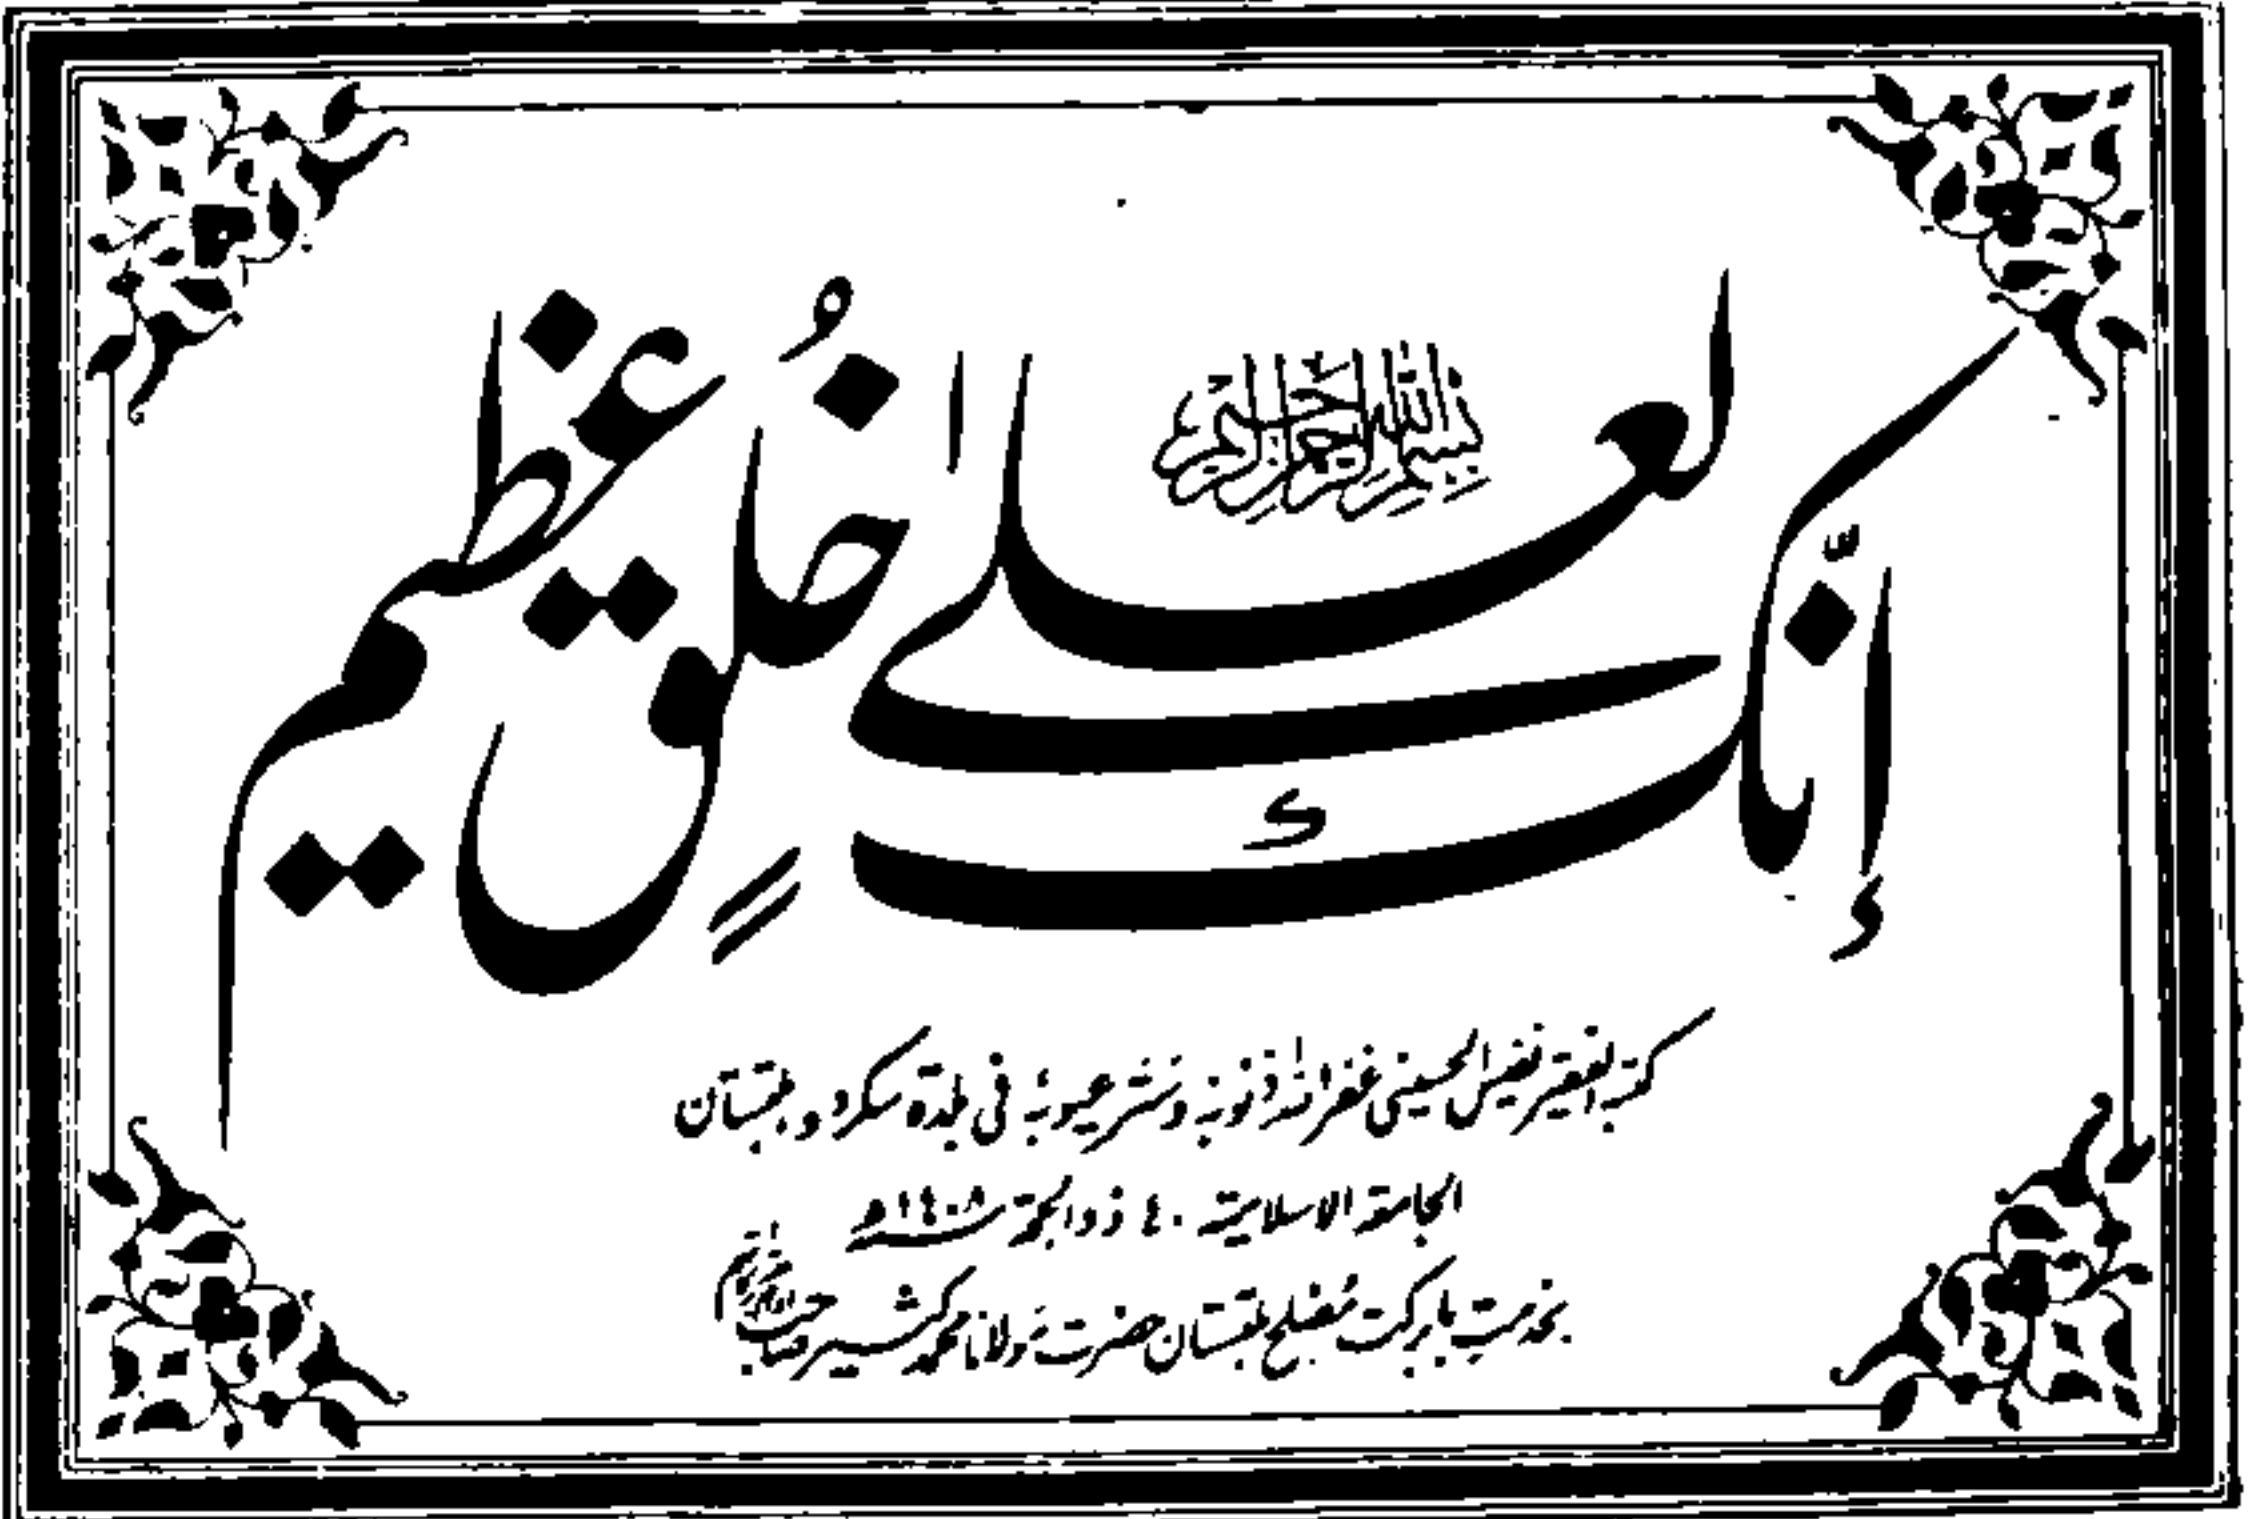 بسم الله الرحمن الرحيم
إنّك لعلىٰ خُلقٍ عظيم
كتبه الفقير نفيس الحسيني غفر الله ذنوبه وستر عيوبه في بلدة سكردو بلتستان
الجامعة الاسلامية ٤٠ ذوالحجة ١٤٠٨ھ
بخدمت بابرکت مُصلح بلتستان حضرت مولانا محمد کثیر صاحب